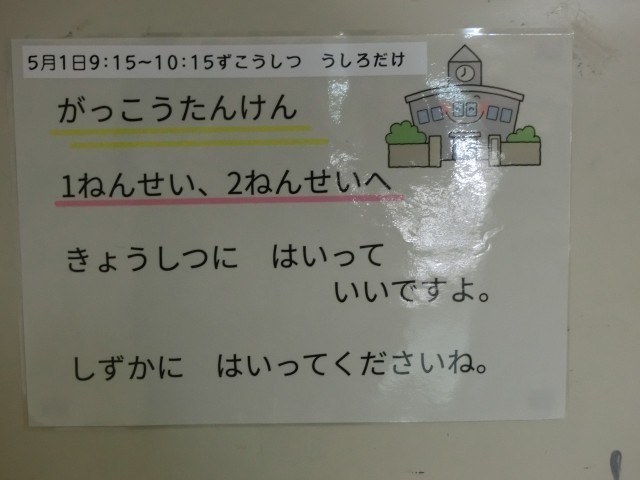 5月1日9:15~10:15ずこうしつ　うしろだけ
がっこうたんけん
1ねんせい、2ねんせいへ
きょうしつに　はいって
いいですよ。
しずかに　はいってくださいね。